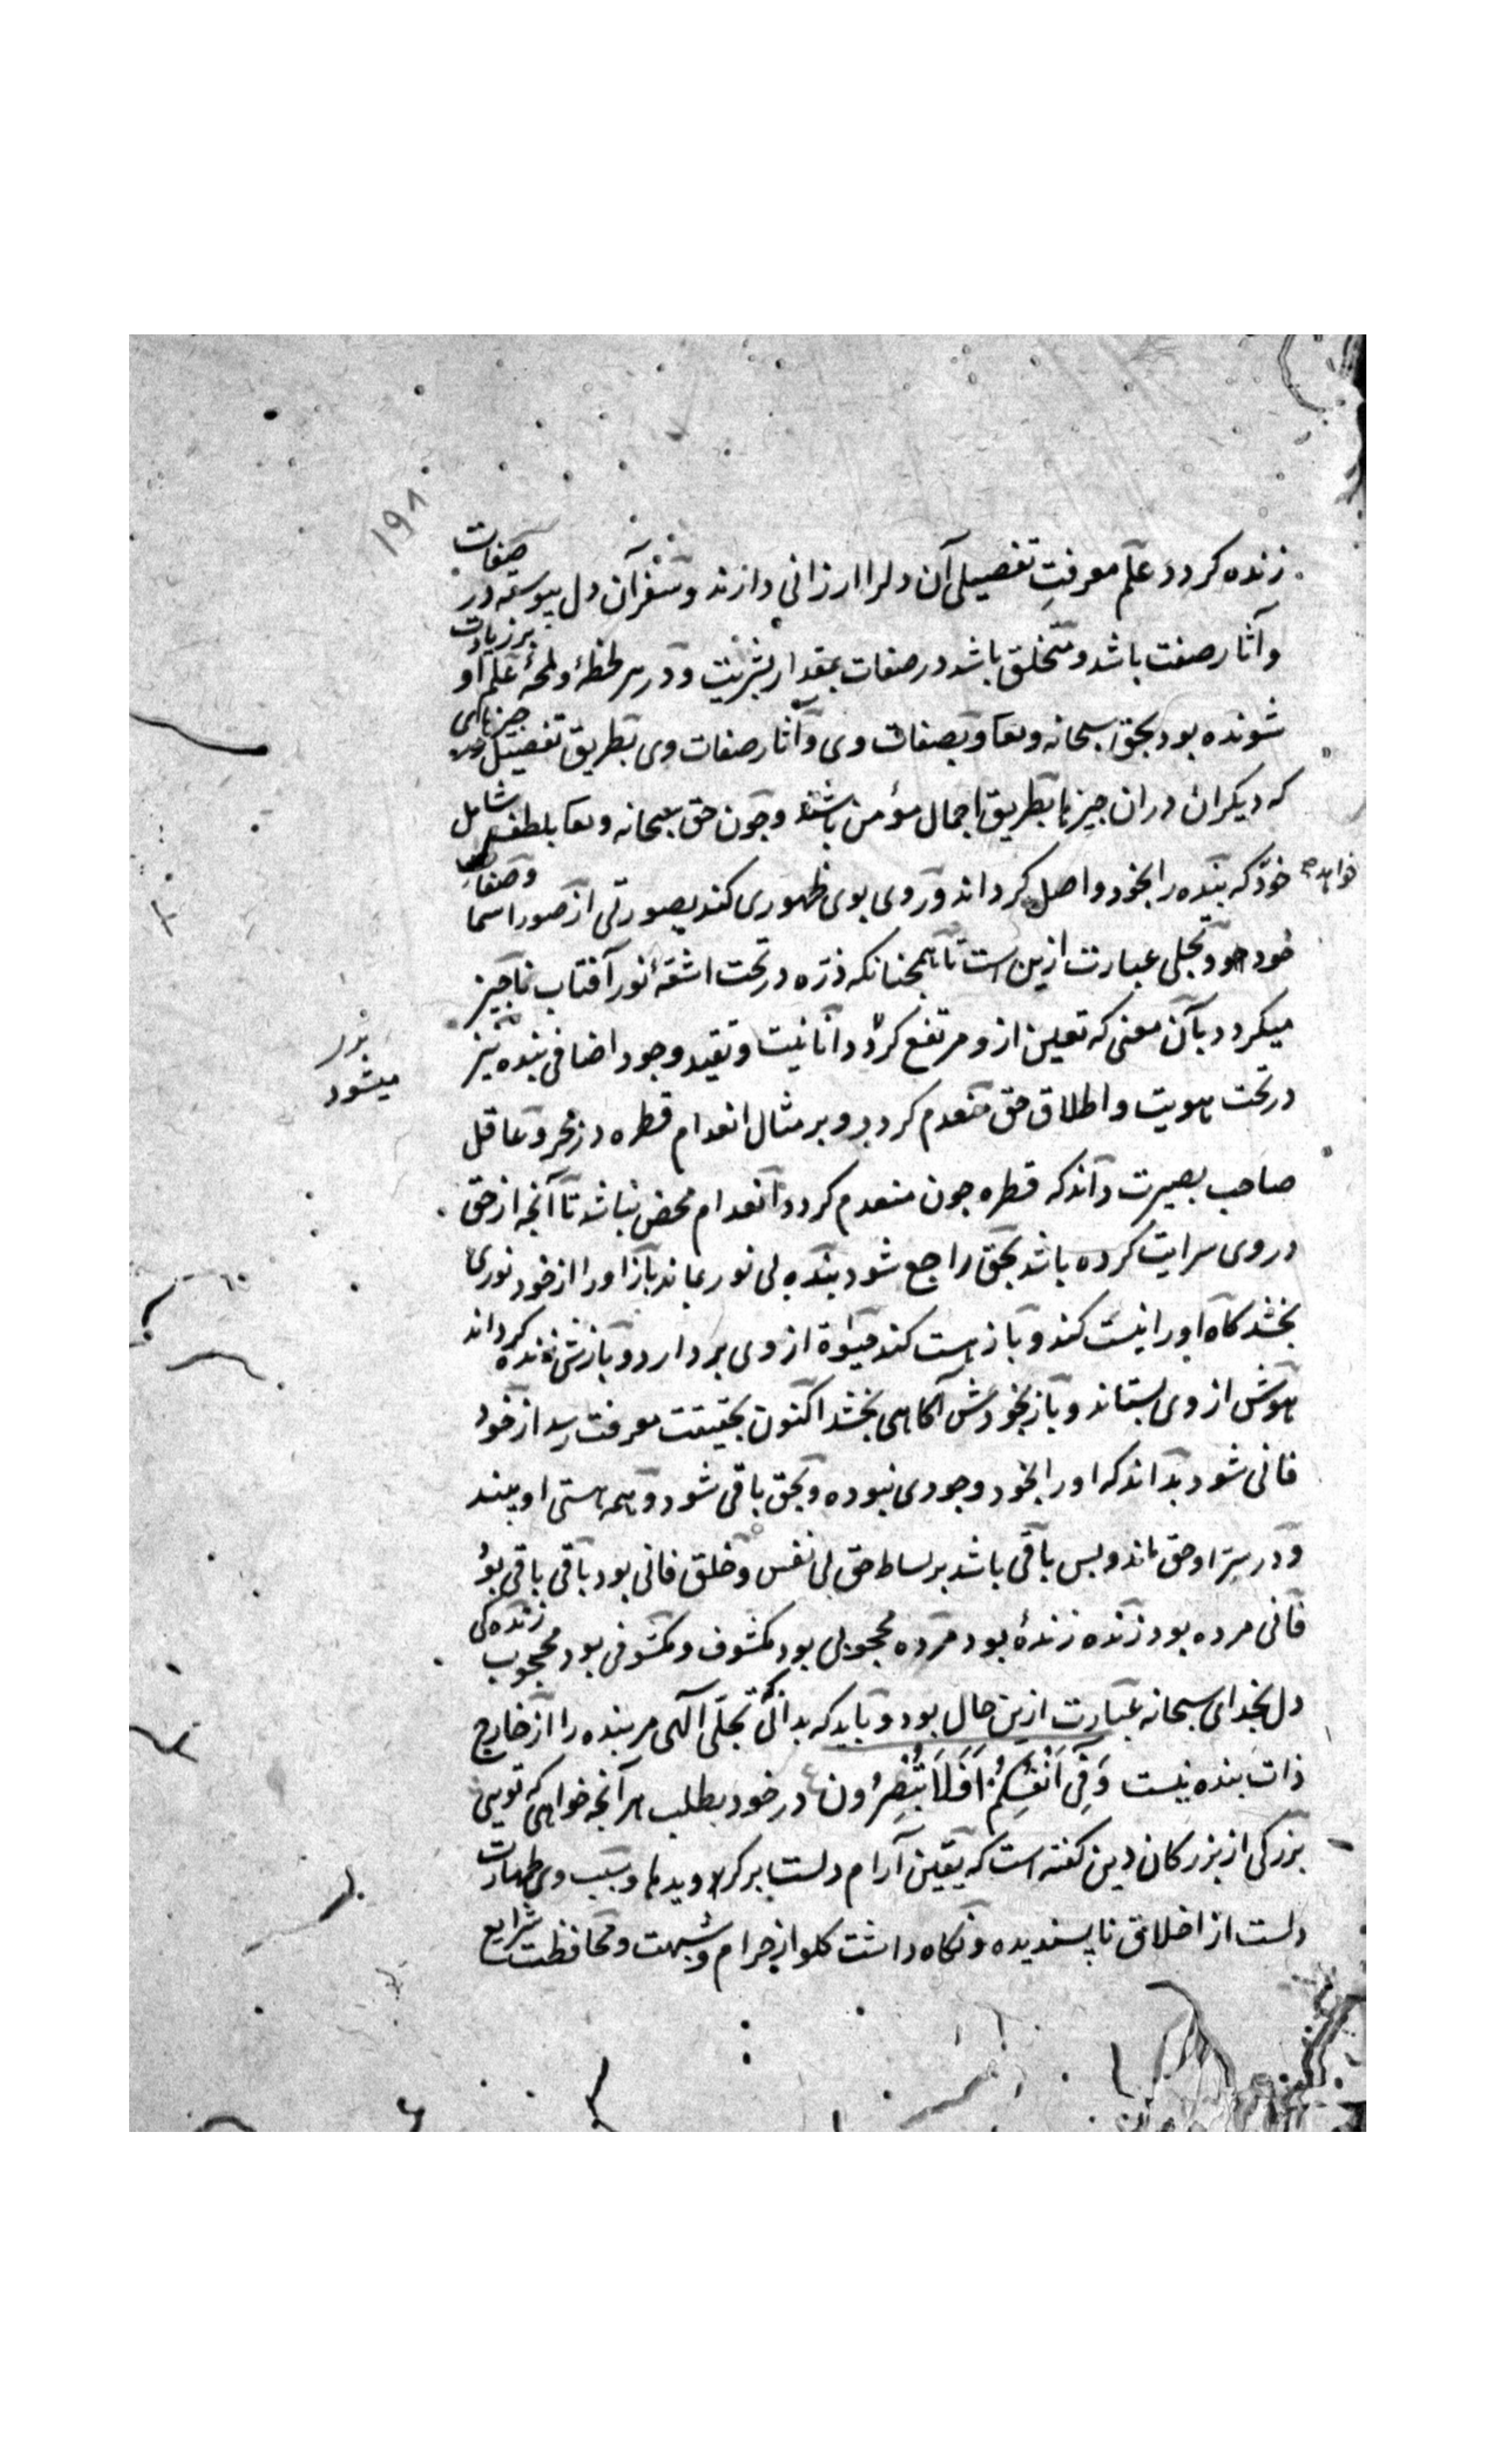 ۱۹۸
زنده کردد علم معرفتِ تفصیلی آن دلرا ارزانی دارند و سفر آن دل پیوسته در صفات
وآثار صفت باشد و متخلق باشد در صفات بمقدار بشریت و در هر لحظهٔ ولمحهٔ علم او برزیادت
شونده بود بحق سبحانه وتعا وبصفات وی وآثار صفات وی بطریق تفصیل در جیزهای
که دیکران دران جیزها بطریق اجمال مؤمن باشند وجون حق سبحانه وتعا بلطف شامل
خود که بنده را بخود واصل کرداند وروی بوی ظهوری کند بصورتی از صور اسما وصفات
خواهد
خود و تجلی عبارت ازین است تا همجنانکه ذرّه در تحت اشعّهٔ نور آفتاب ناجیز
میکردد بآن معنی که تعین ازو مرتفع کردد انانیت وتقید وجود اضافی بنده نیز
میشود
در تحت هویت واطلاق حق منعدم کردد و بر مثال انعدام قطره در بحر وعاقل
صاحب بصیرت داند که قطره جون منعدم کردد انعدام محض نباشد تا آنجه از حق
در وی سرایت کرده باشد بحق راجع شود بنده بی نور بماند باز اورا از خود نوری
بخشد کاه اورا نیست کند وباز هست کند حیوة از وی بردارد وبازش زنده کرداند
هوش از وی بستاند وباز بخودش آکاهی بخشد اکنون بحقیقت معرفت رسد از خود
فانی شود بداند که اورا بخود وجودی نبوده وبحق باقی شود وهمه هستی او بیند
ودر سرّ او حق ماند وبس باقی باشد بر بساط حق بی نفس وخلق فانی بود باقی باقی بود
فانی مرده بود زنده زندهٔ بود مرده محجوبی بود مکشوف ومکشوفی بود محجوب زنده کی
دل بخدای سبحانه عبارت ازین حال بود وباید که بدانی که تجلّی آلهی مر بنده را از خارج
ذات بنده نیست وَفِی اَنْفُسِکُمْ اَفَلَا تُبْصِرُون در خود بطلب هر آنجه خواهی که تویی
بزرکی از بزرکان دین کفته است که یقین آرام دلست بر کرد ویدها وسبب وی طهارت
دلست از اخلاق ناپسندیده ونکاه داشت کلو از حرام وشبهت ومحافظت شرایع